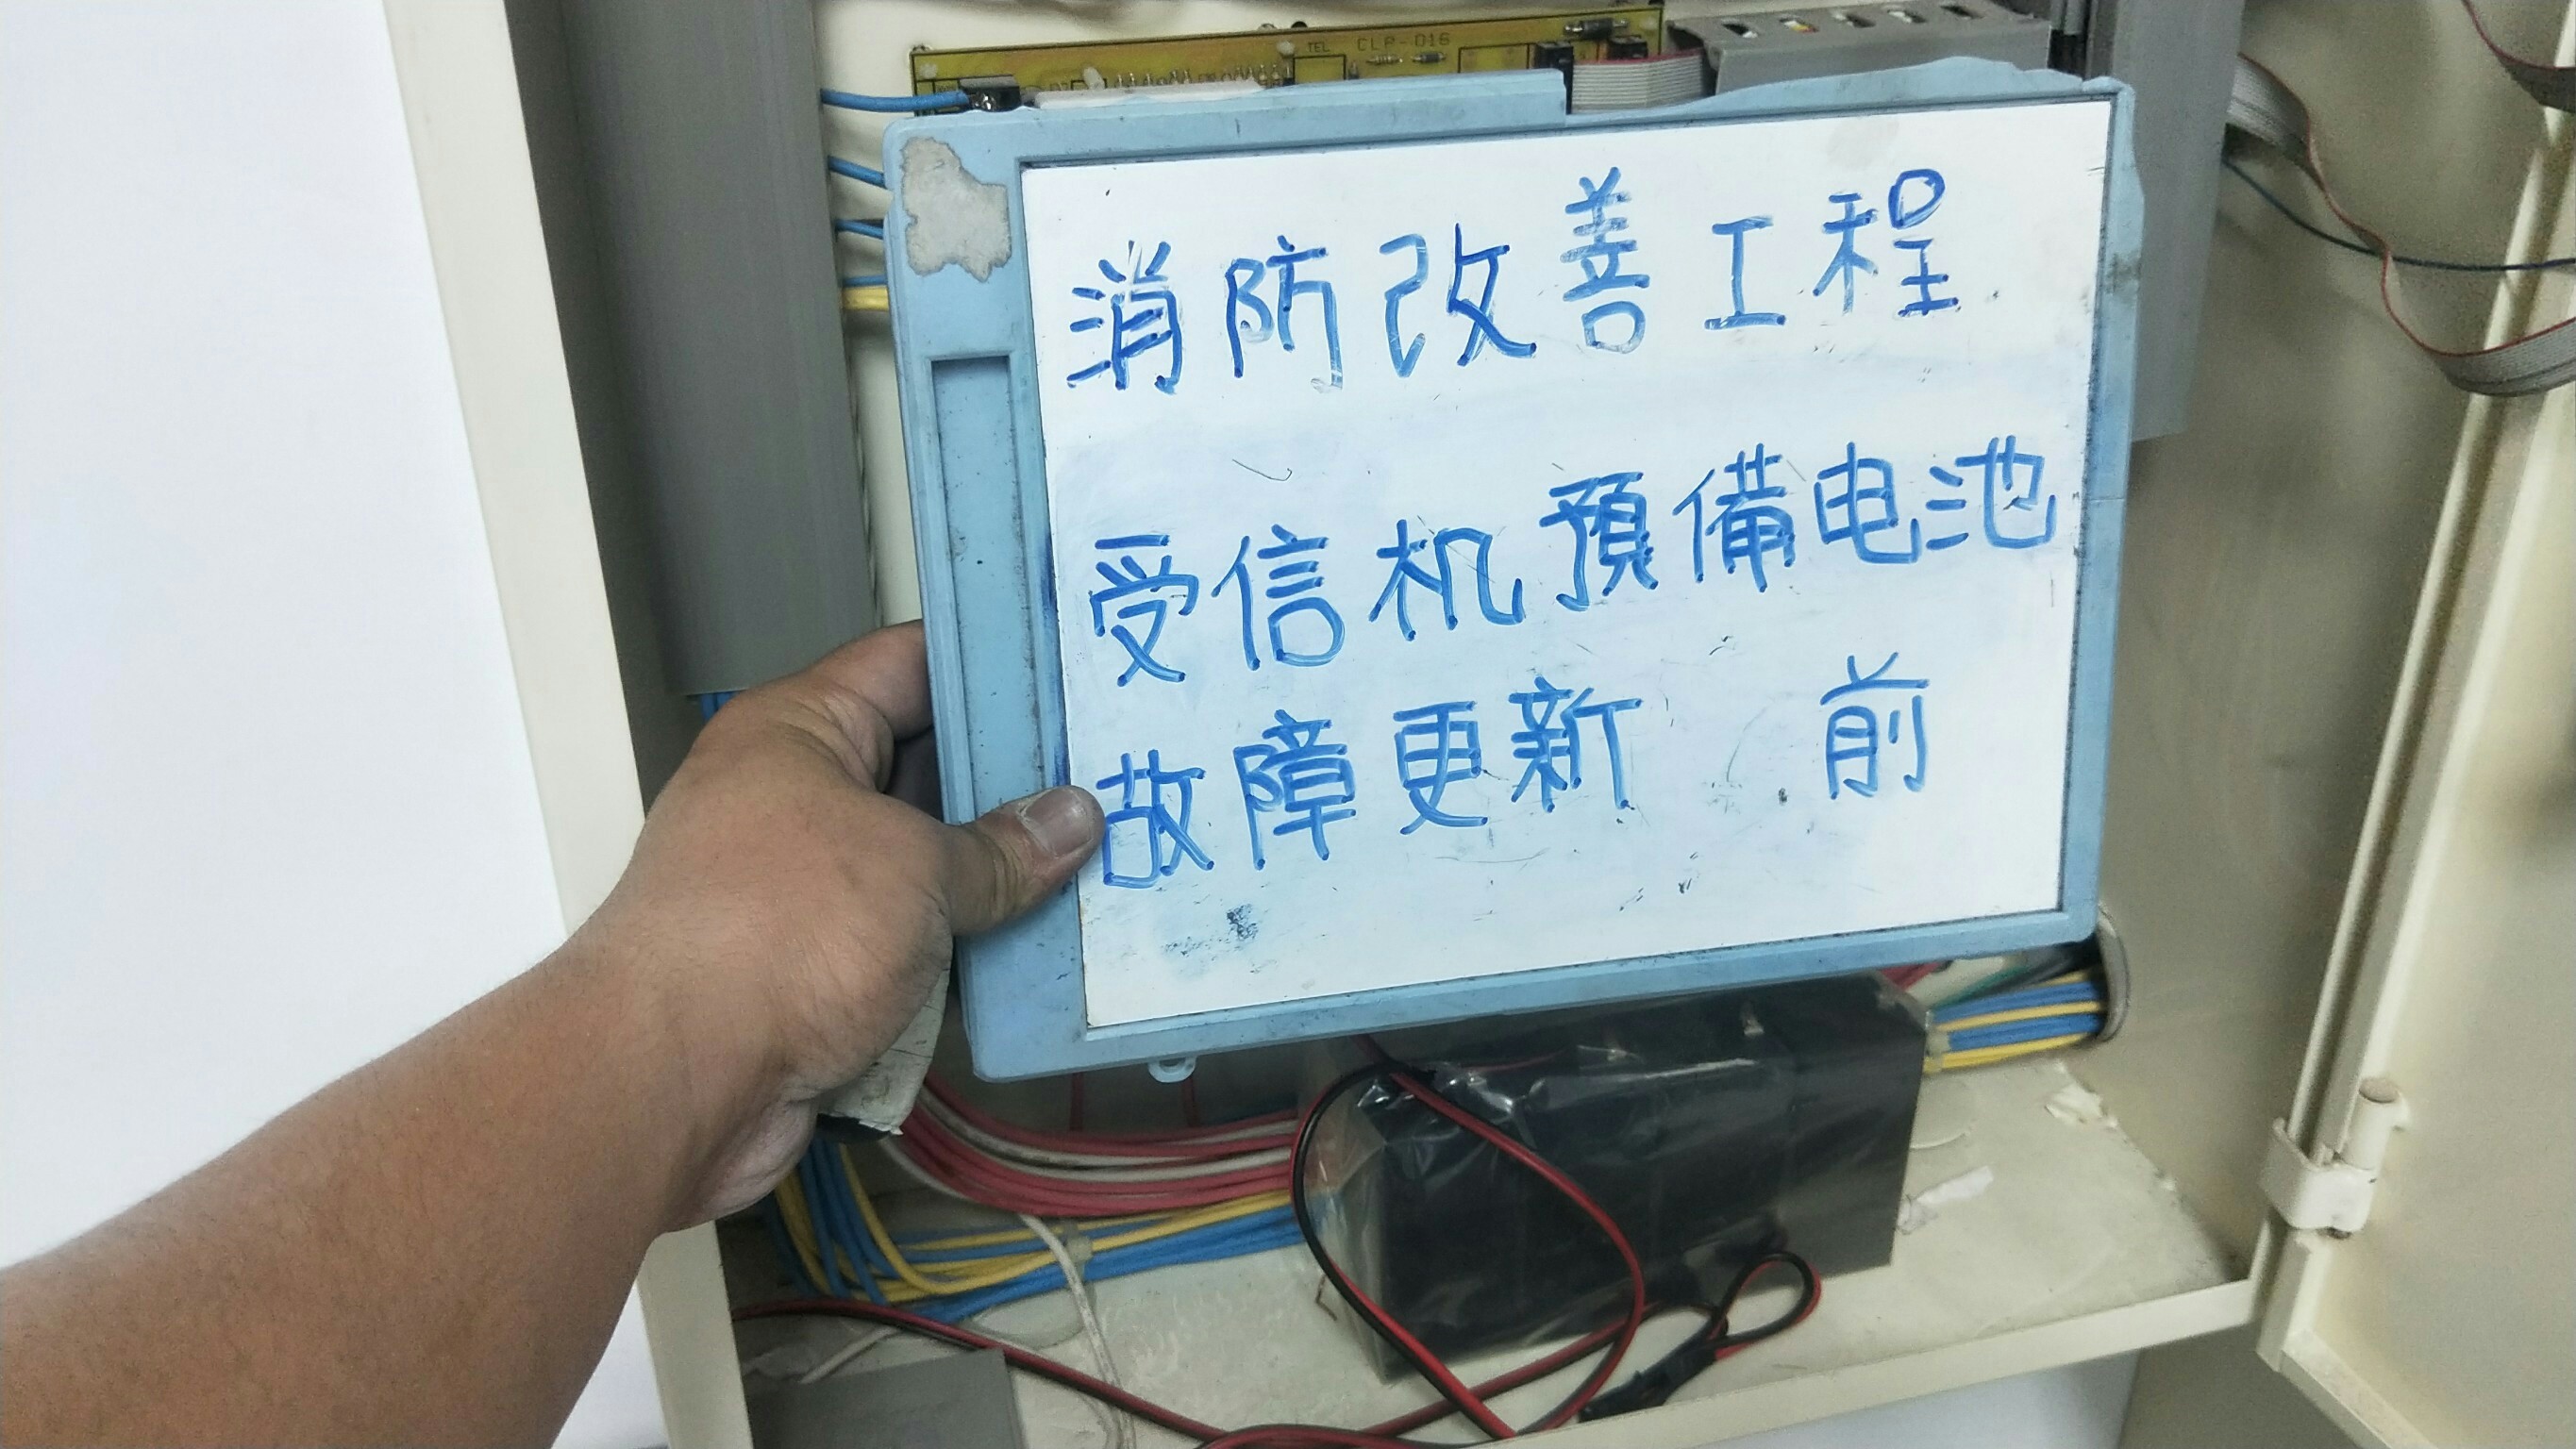 TEL CLP-016
消防改善工程
受信机預備电池
故障更新 前